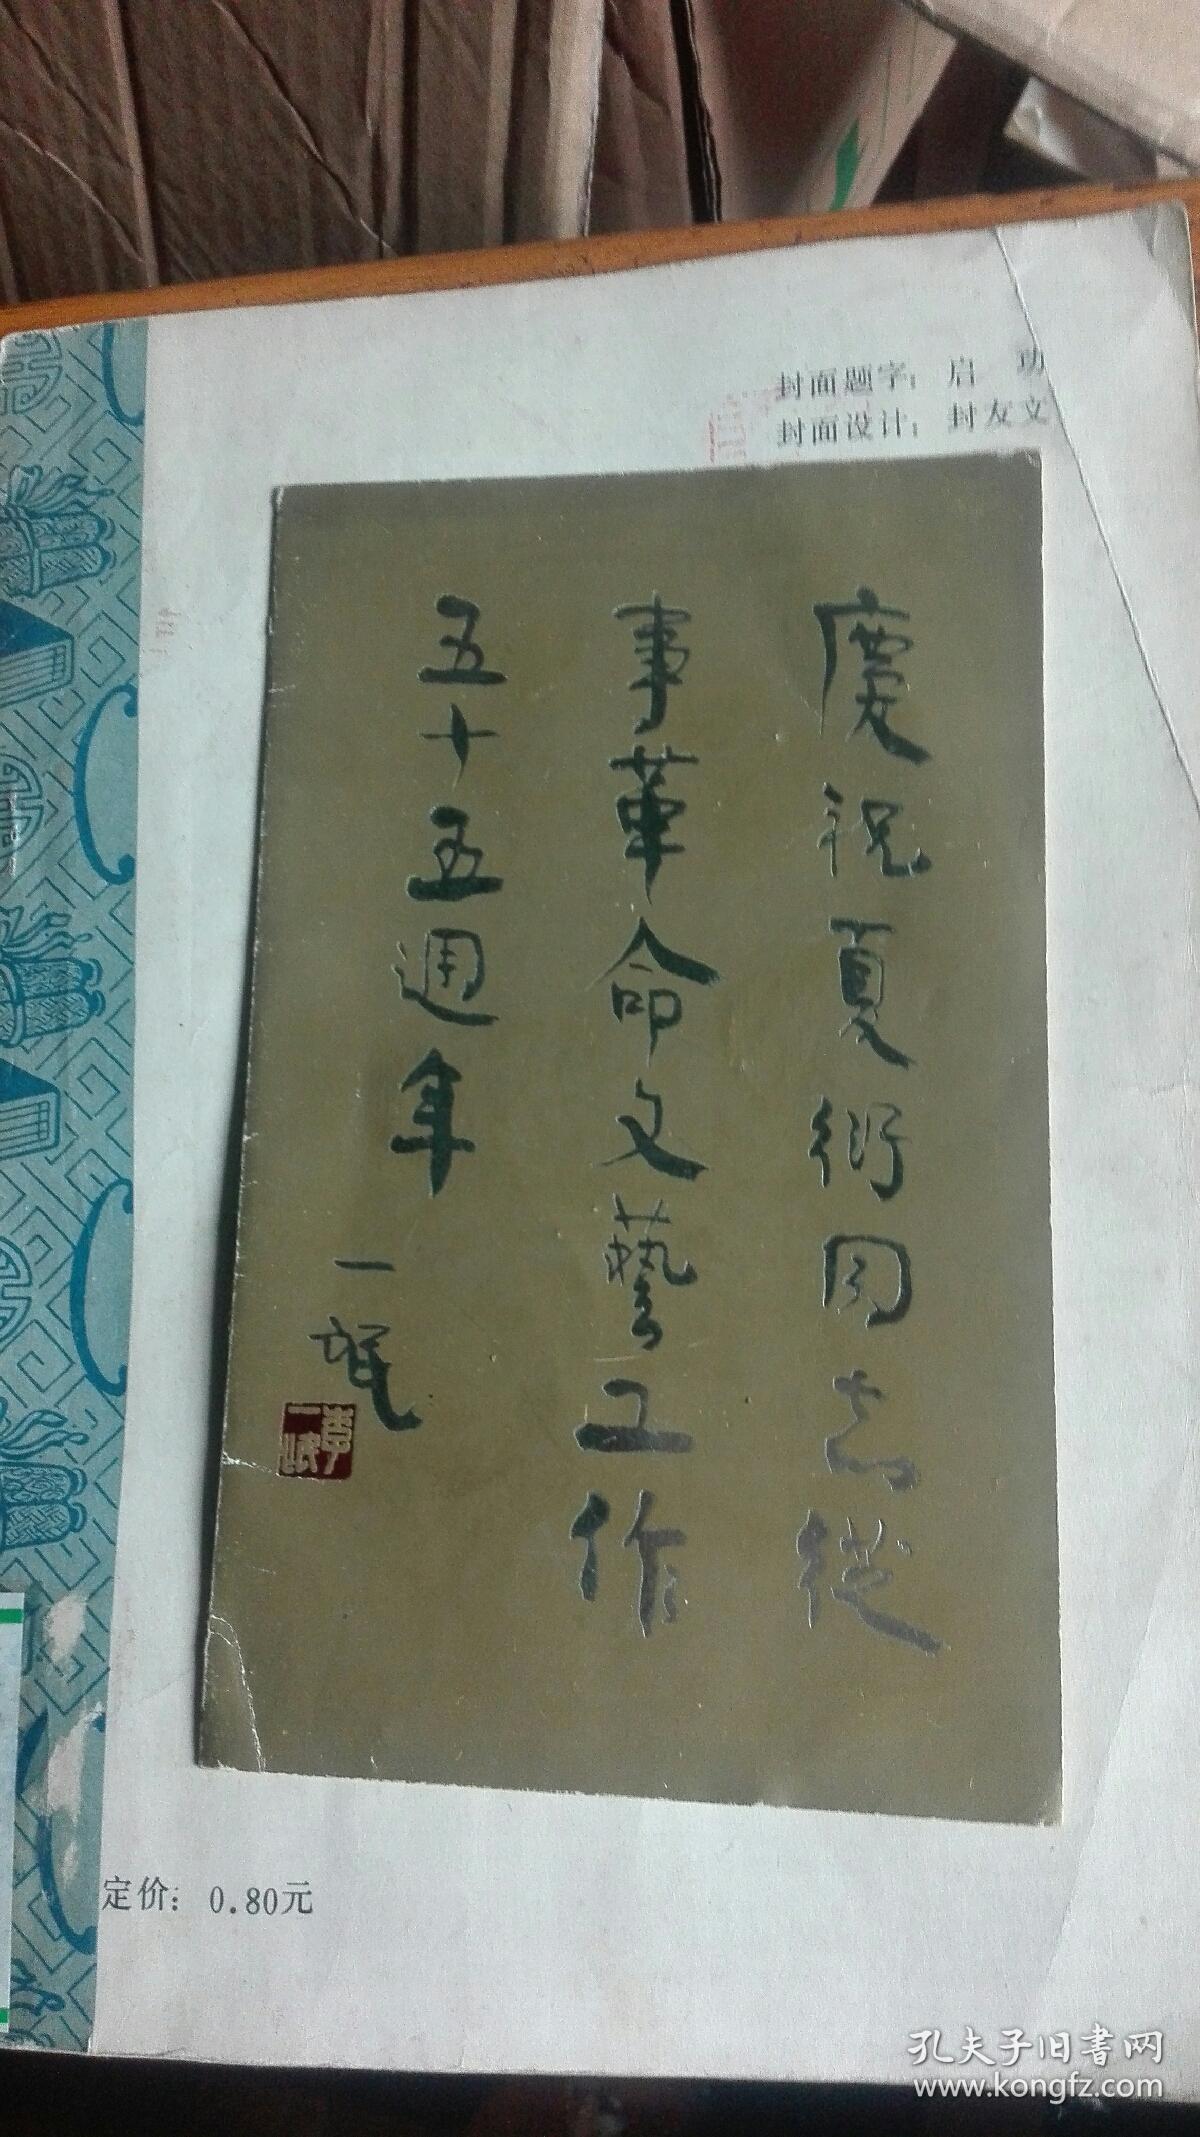 封面题字：启　功
封面设计：封友文
慶祝夏衍同志從
事革命文藝工作
五十五週年
一氓
李一氓
定价：0.80元
孔夫子旧书网
www.kongfz.com